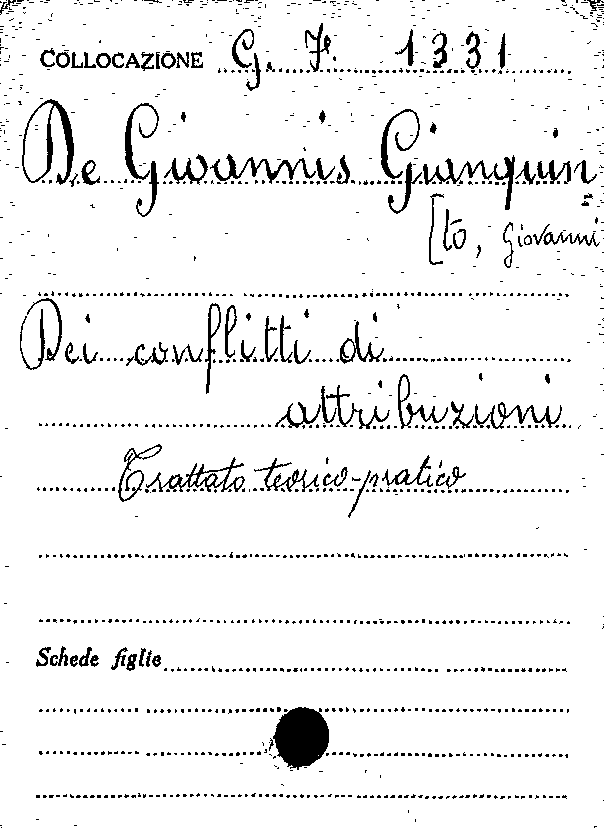 COLLOCAZIONE G. F. 1331
De Giovannis Gianquin=
[to, Giovanni
Dei conflitti di
attribuzioni
Trattato teorico-pratico
Schede figlie